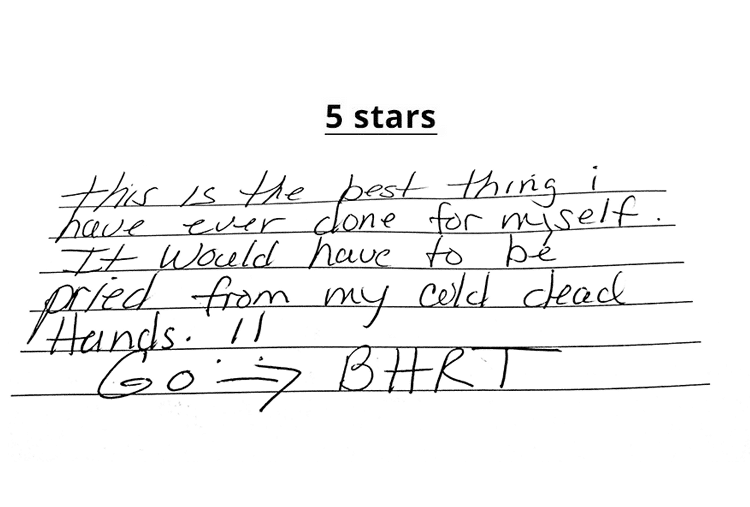 5 stars
this is the best thing i
have ever done for myself.
It Would have to be
pried from my cold dead
Hands. !!
Go → BHRT